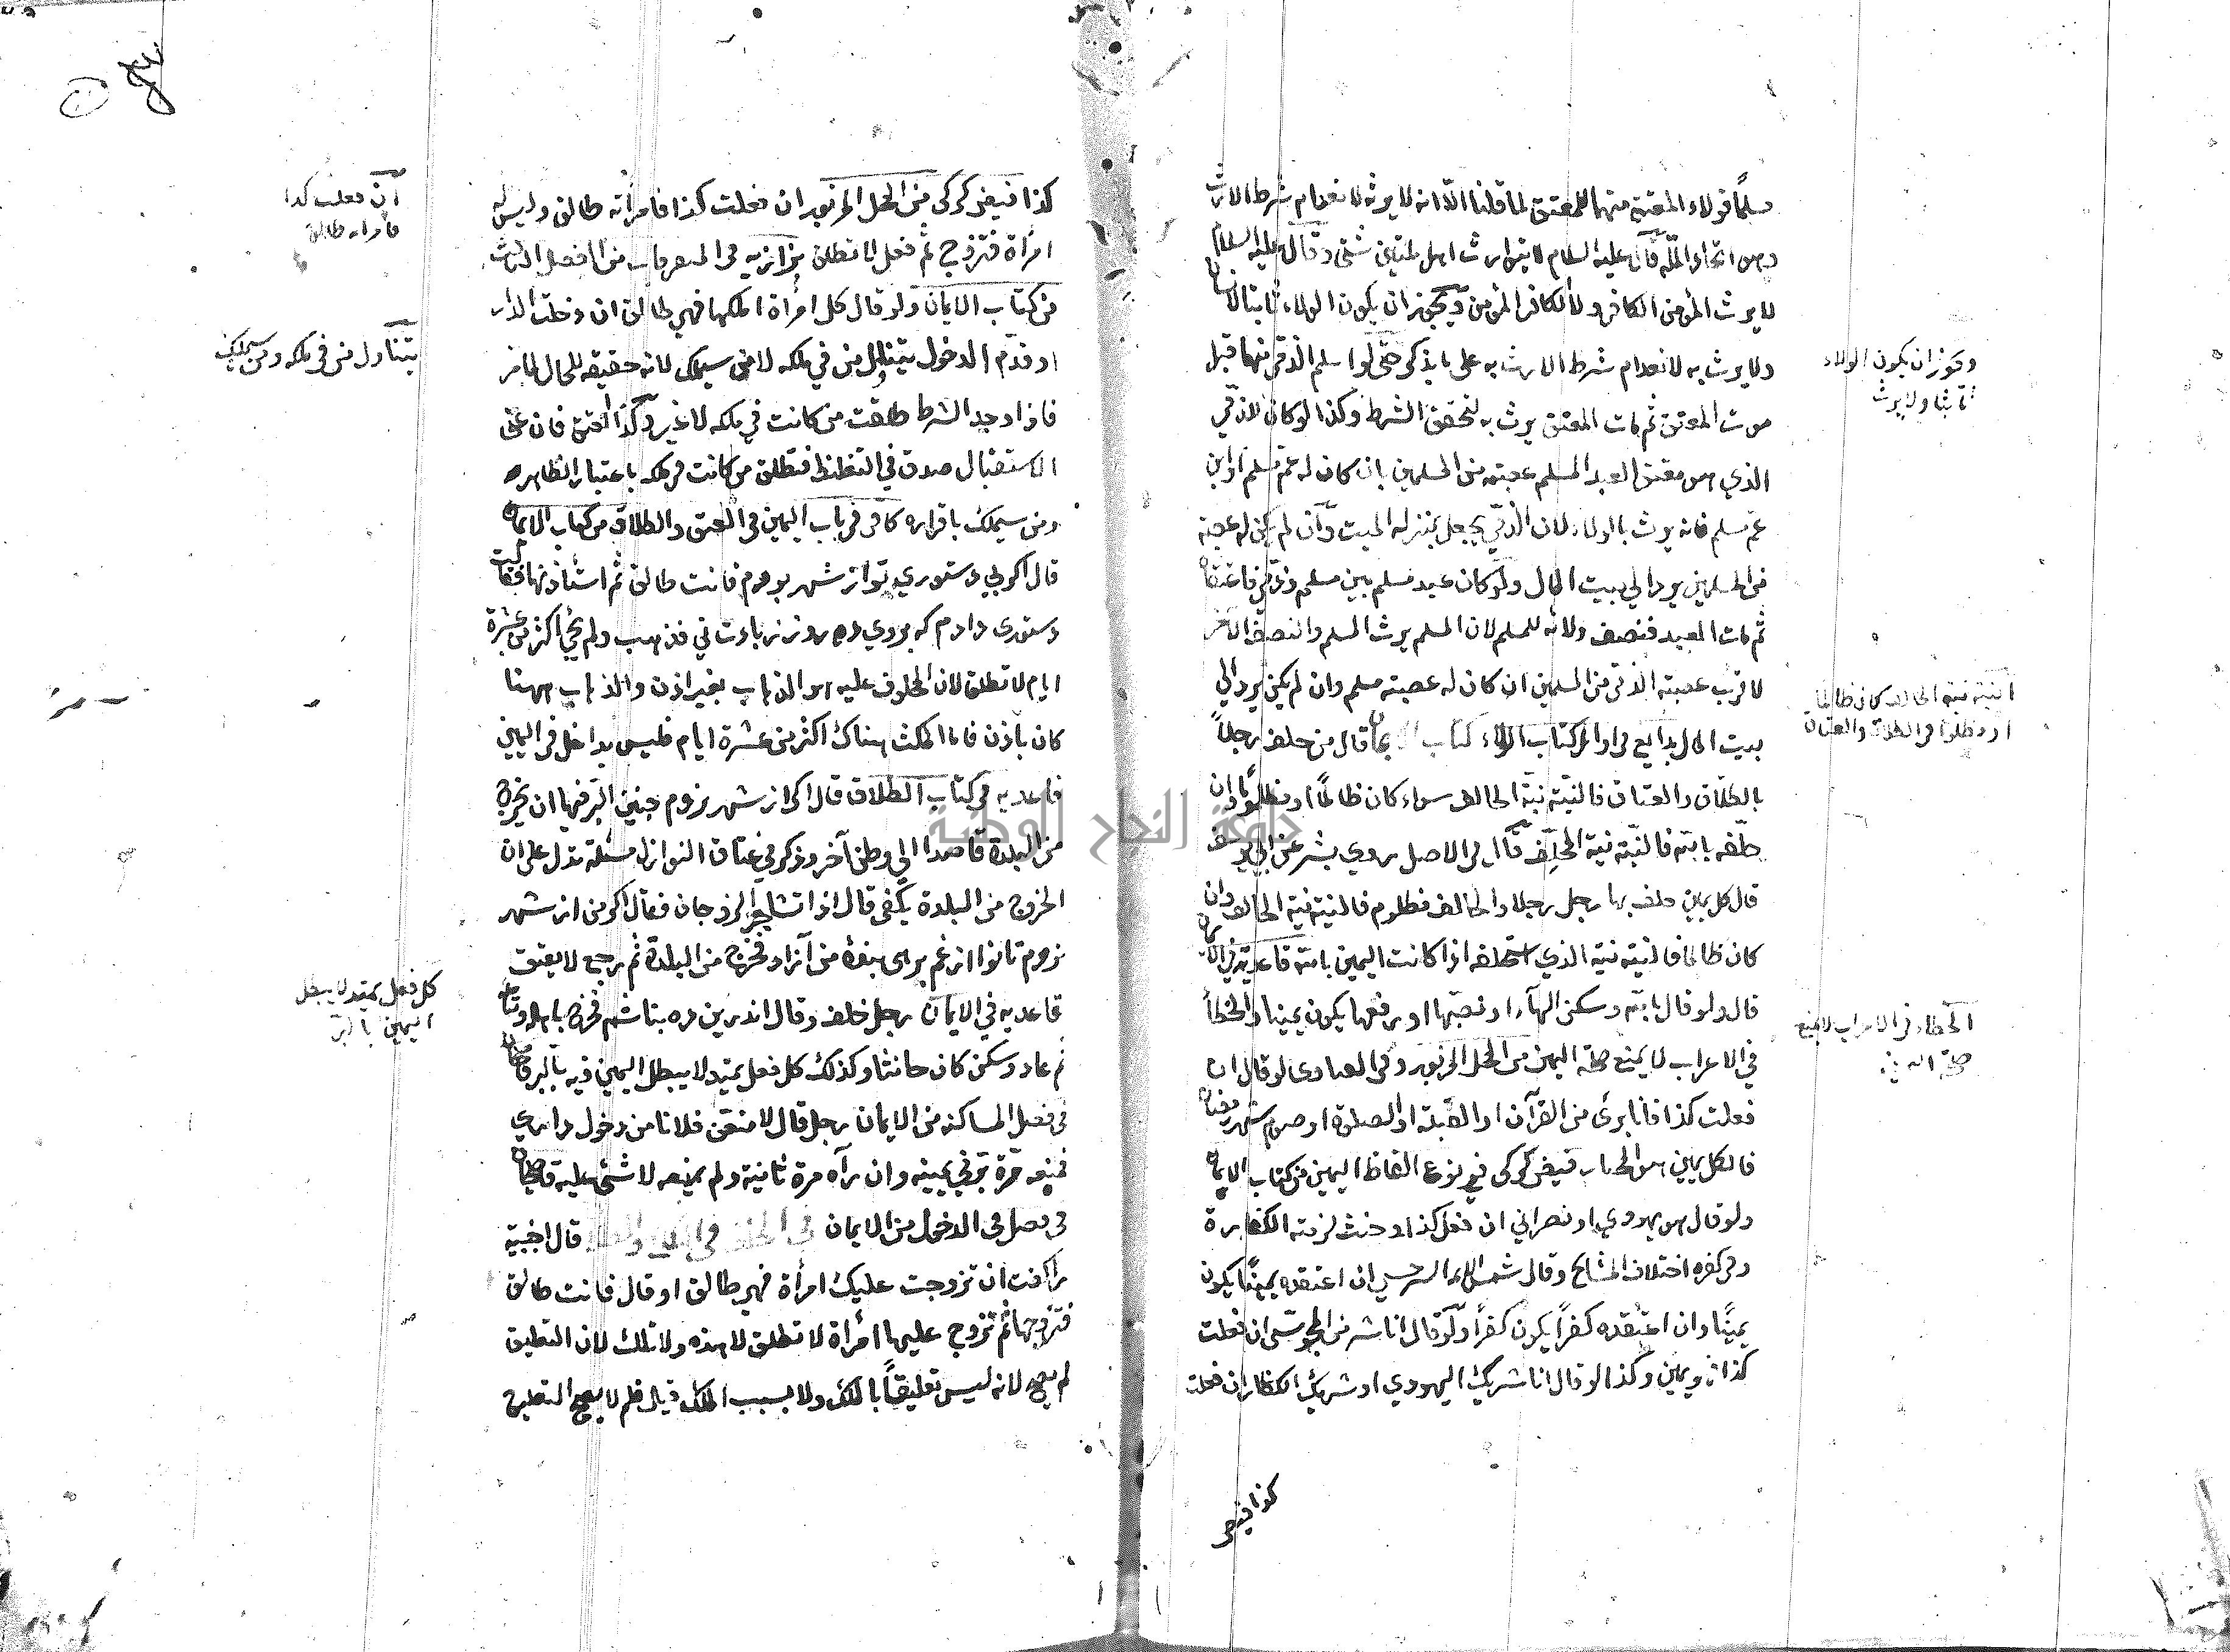 مسلمًا فولاء المعتق منهما للمعتق لما قلنا الّا انه لا يرثه لانعدام شرط الارث
وهو اتحاد الملّة قال عليه السلام لا يتوارث اهل ملتين شتى وقال عليه السلام
لا يرث المؤمن الكافر ولا الكافر المؤمن ويجوز ان يكون الولاء ثابتا لانسان
ولا يرث به لانعدام شرط الارث به على ما يذكر حتى لو اسلم الذمّي منهما قبل
موت المعتق ثم مات المعتق يرث به لتحقق الشرط وكذا لو كان للذمّي
الذي هو معتق العبد المسلم عصبة من المسلمين بان كان له عم مسلم او ابن
عم مسلم فانه يرث بالولاء لان الذمّي يجعل بمنزلة الميت وان لم يكن له عصبة
من المسلمين يرد الى بيت المال ولو كان عبد مسلم بين مسلم وذمّي فاعتقاه
ثم مات العبد فنصف ولائه للمسلم لان المسلم يرث المسلم والنصف الآخر
لاقرب عصبة الذمّي من المسلمين ان كان له عصبة مسلم وان لم يكن يرد الى
بيت المال بدايع في اوائل كتاب الولاء كتاب الايمان قال من حلف رجلاً
بالطلاق والعتاق فالنيّة نيّة الحالف سواء كان ظالمًا او مظلومًا وان
حلّفه بالله فالنيّة نية المحلِّف قال في الاصل روي بشر عن ابي يوسف
قال كل يمين حلف بها رجل رجلا والحالف مظلوم فالنية نية الحالف وان
كان ظالما فالنيّة نية الذي استحلفه اذا كانت اليمين بالله قاعدية في الايمان
قال ولو قال بالله وسكن الهآء او نصبها او رفعها يكون يمينا والخطأ
في الاعراب لا يمنع صحّة اليمين من المحل المزبور وفي الفتاوى لو قال ان
فعلت كذا فانا برئ من القرآن او القبلة او الصلوة او صوم شهر رمضان
فالكل يمين هو المختار فيض كركي في نوع الفاظ اليمين من كتاب الايمان
ولو قال هو يهودي او نصراني ان فعل كذا وحنث لزمته الكفارة
وفي كفره اختلاف المشايخ وقال شمس الائمة السرخسي ان اعتقده يمينًا يكون
يمينًا وان اعتقده كفرًا يكون كفرًا ولو قال انا شر من المجوسى ان فعلت
كذا فهو يمين وكذا لو قال انا شريك اليهودي او شريك الكفار ان فعلت
كذا فيض
ويجوز ان يكون الولاء
ثابتا ولا يرث
النية نية الحالف كان ظالمًا
او مظلومًا في الطلاق والعتاق
الخطاء في الاعراب لا يمنع
صحّة اليمين
كذا فيض كركي من المحل المزبور ان فعلت كذا فامرأته طالق وليس له
امرأة فتزوج ثم فعل لا تطلق بزازيه في المتفرقات من الفصل الثالث
من كتاب الايمان ولو قال كل امرأة املكها فهي طالق ان دخلت الدار
او قدّم الدخول يتناول من في ملكه لا من سيملك لانه حقيقة للحال
فاذا وجد الشرط طلقت من كانت في ملكه لا غير وكذا العتق فان عنى
الاستقبال صدق في التغليظ فتطلق من كانت في ملكه باعتبار الظاهر
ومن سيملك باقراره كافي في باب اليمين في العتق والطلاق من كتاب الايمان
قال اكر بي دستوري تو از شهر بروم فانت طالق ثم استأذنها فقالت
دستورى دادم كه بروي ده روز فذهب ولم يجئ اكثر من عشرة
ايام لا تطلق لان المحلوف عليه هو الذهاب بغير اذن والذهاب ههنا
كان باذن فاما المكث هناك اكثر من عشرة ايام فليس بداخل في اليمين
قاعديه في كتاب الطلاق قال اكر از شهر نروم چنين البر فيها ان يخرج
من البلدة قاصدا الى وطن آخر وذكر في عتاق النوازل مسئلة تدل على ان
الخروج من البلدة يكفي قال اذا تشاجر الزوجان فقال اكر من از شهر
نروم تا تو از غم برهى بنده من آزاد فخرج من البلدة ثم رجع لا يعتق
قاعديه في الايمان رجل حلف وقال اندرين ده نباشم فخرج باهله ومتاعه
ثم عاد وسكن كان حانثا وكذلك كل فعل يمتد لا يبطل اليمين فيه بالبر قاضيخان
في فصل المساكنة من الايمان رجل قال لامنعن فلانا من دخول داري
فمنعه مرّة برّ في يمينه وان رآه مرة ثانية ولم يمنعه لا شئ عليه قاضيخان
في فصل في الدخول من الايمان قال اجنبية
ان تزوجت عليك امرأة فهي طالق او قال فانت طالق
فتزوجها ثم تزوج عليها امرأة لا تطلق لا هذه ولا تلك لان التعليق
لم يصح لانه ليس تعليقاً بالملك ولا بسبب الملك التعليق
ان فعلت كذا
فامرأته طالق
يتناول من في ملكه ومن سيملك
كل فعل يمتد لا يبطل
اليمين بالبرّ
جامعة النجاح الوطنية